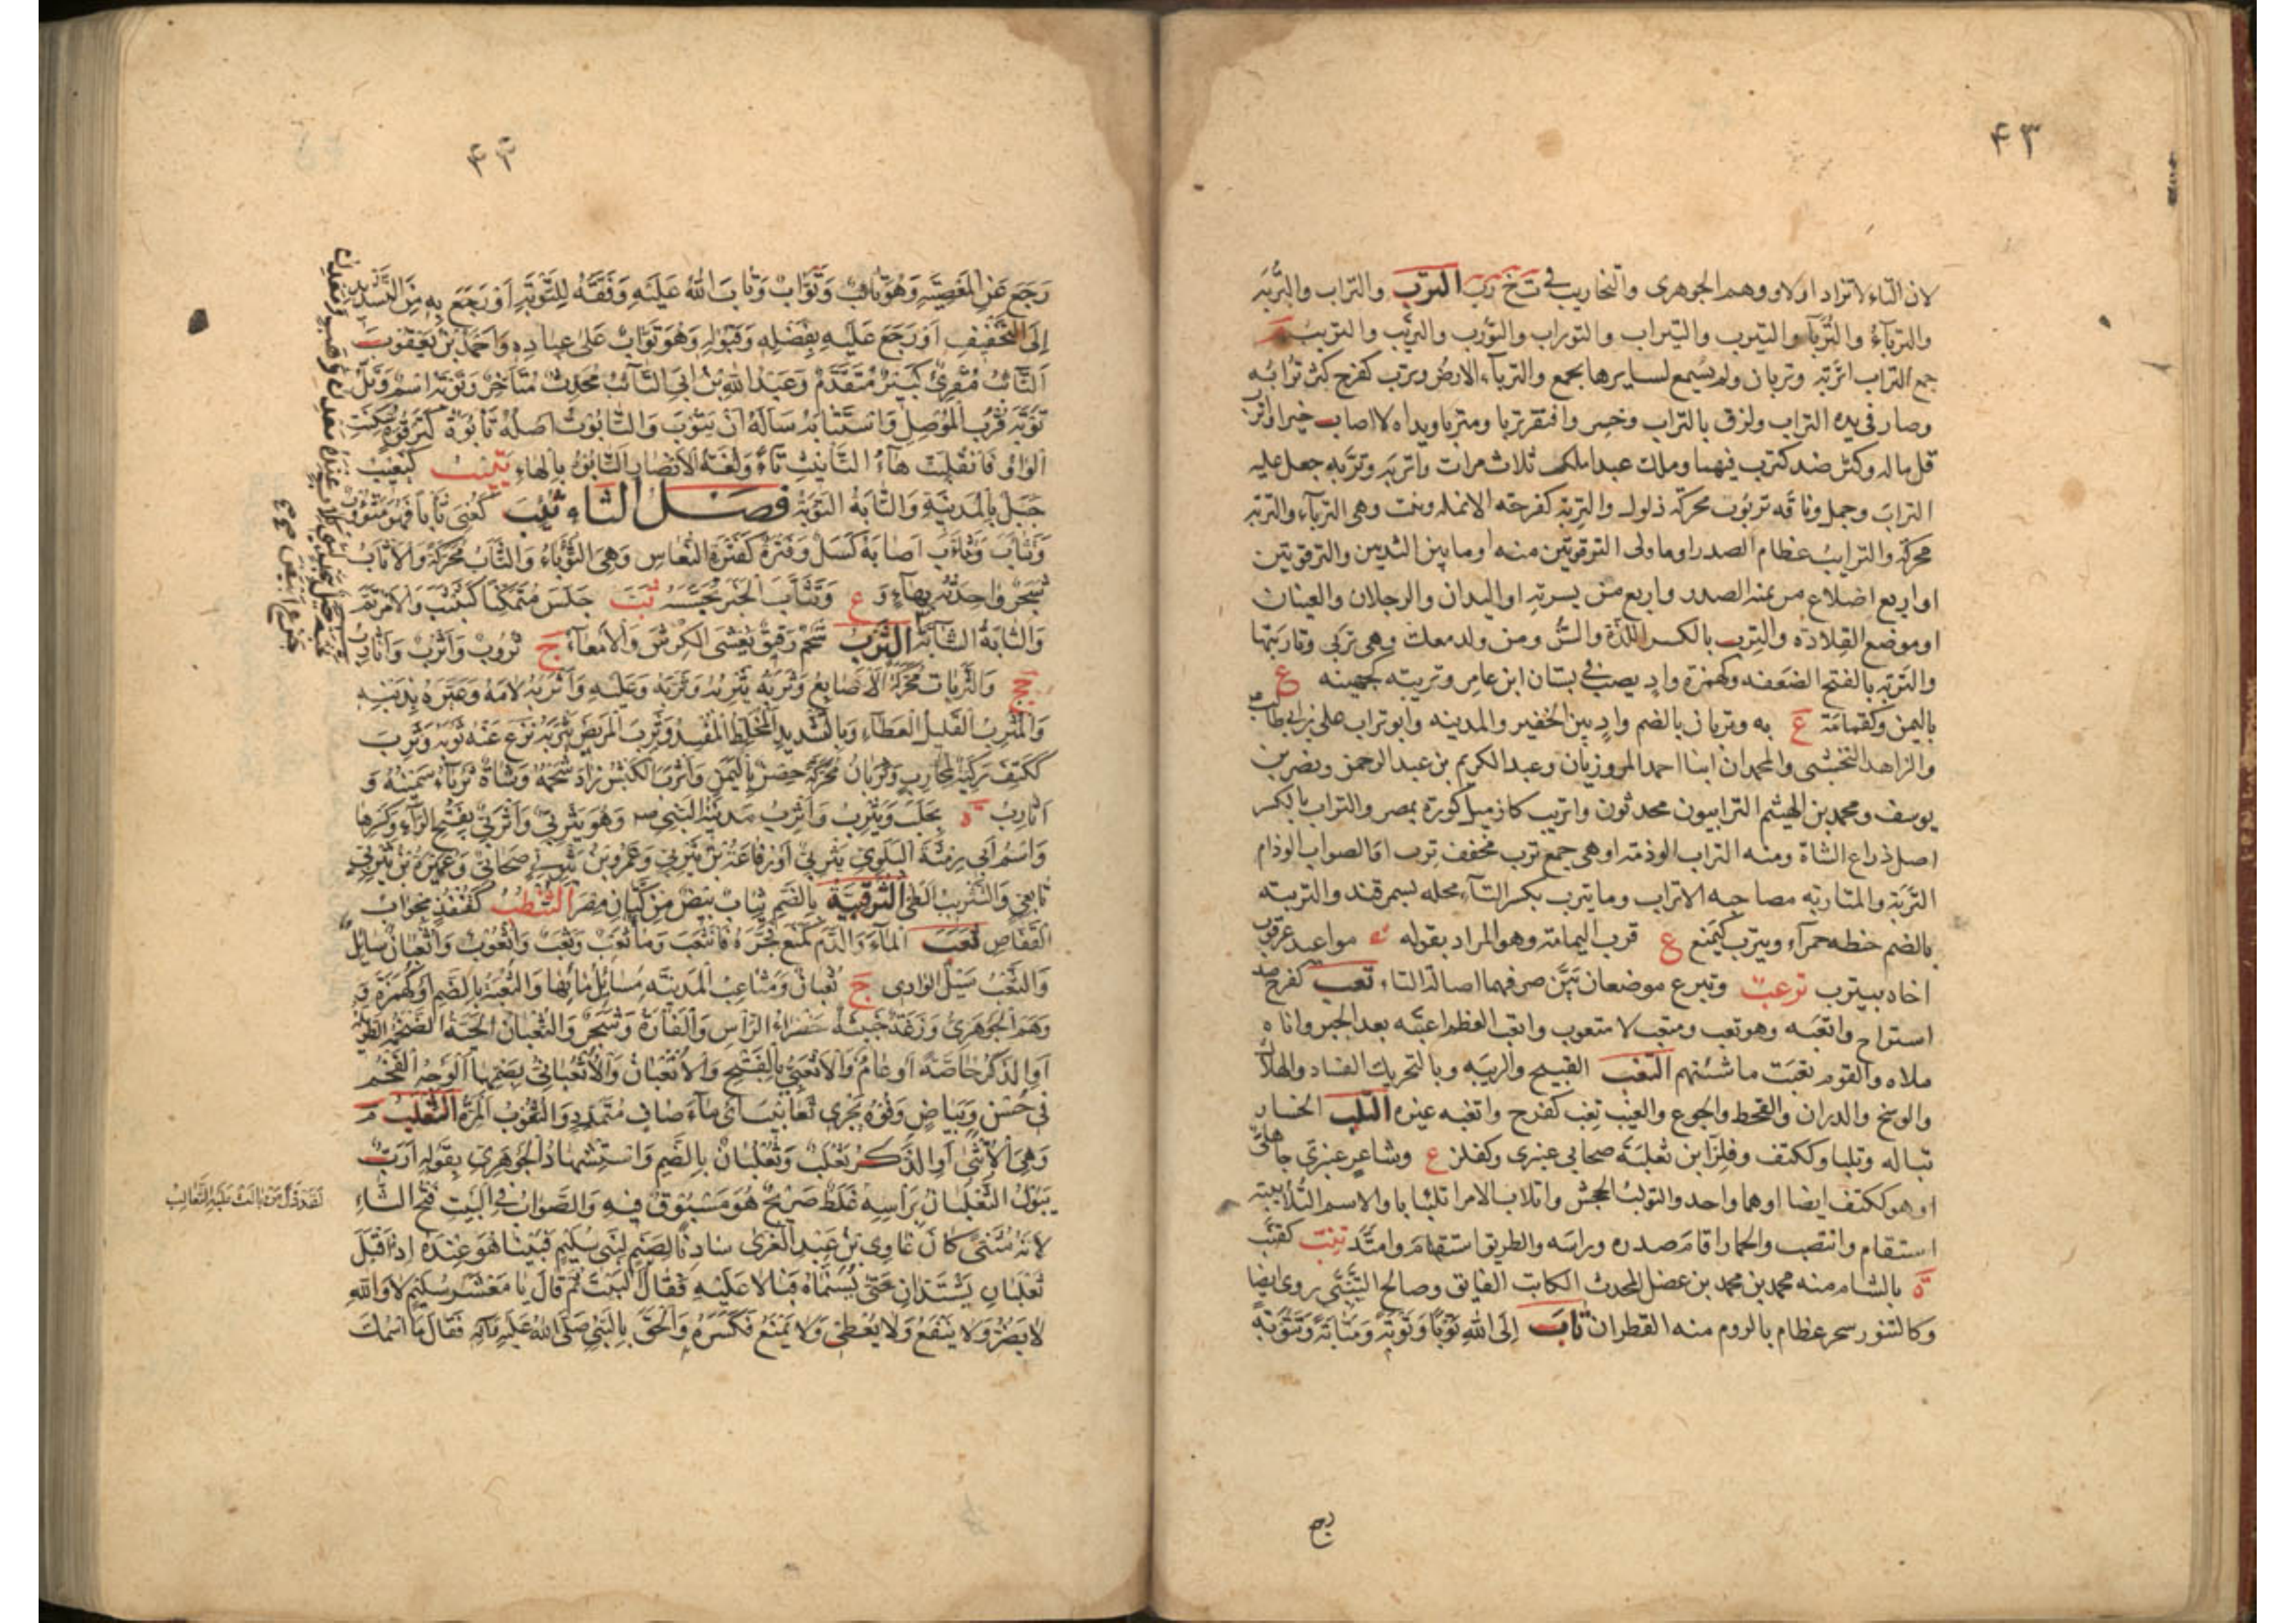 ٤٣
لان التاء لا تزاد اولا ووهم الجوهرى والتخاريب في خ ر ب الترب والتراب والتربة
والترباء والترباء والتيرب والتيراب والتوراب والتورب والتريب والتريب م
جمع التراب اتربة وتربان ولم يسمع لسايرها بجمع والترباء الارض وترب كفرح كثر ترابه
وصار في يده التراب ولزق بالتراب وخسر وافتقر تربا ومتربا ويداه لا اصاب خيرا واترب
قل ماله وكثر ضد كترب فيهما وملك عبدا ملك ثلاث مرات واتربه وتربه جعل عليه
التراب وجمل وناقة تربوت محركة ذلول والتربة كفرحة الانملة ونبت وهى الترباء والتربة
محركة والترايب عظام الصدر او ما ولى الترقوتين منه او ما بين الثديين والترقوتين
او اربع اضلاع من يمنة الصدر واربع من يسرته او اليدان والرجلان والعينان
او موضع القلادة والترب بالكسر اللدة والسن ومن ولد معك وهى تربى وتاربتها
والتربة بالفتح الضعفة وكهمزة واد يصب في بستان ابن عامر وتريبة كجهينة ع
باليمن وكقمامة ع به وتربان بالضم واد بين الحفير والمدينة وابو تراب على بن ابى طالب
والزاهد النخشبى والمحمدان ابنا احمد المروزيان وعبد الكريم بن عبد الرحمن ونصر بن
يوسف ومحمد بن الهيثم الترابيون محدثون واتريب كازميل كورة بمصر والتراب بالكسر
اصل ذراع الشاة ومنه التراب الوذمة او هى جمع ترب مخفف ترب او الصواب الوذام
التربة والمتاربة مصاحبة الاتراب وما يترب بكسر التاء محلة بسمرقند والتربية
بالضم حنطة حمراء ويترب كيمنع ع قرب اليمامة وهو المراد بقوله مواعيد عرقوب
اخاه بيترب ترعب وتبرع موضعان بين صرفهما اصالة التاء تعب كفرح ضد
استراح واتعبه وهو تعب ومتعب لا متعوب واتعب العظم اعتبه بعد الجبر واناءه
ملاه والقوم تعبت ماشيتهم التغب القبيح والريبة وبالتحريك الفساد والهلاك
والوسخ والدرن والقحط والجوع والعيب تغب كفرح واتغبه غيره التلب الخسار
تبا له وتلبا وككتف وفلز ابن ثعلبة صحابي عنبرى وكفلز ع وشاعر عنبرى جاهلى
او هو ككتف ايضا او هما واحد والتولب الجحش واتلاب الامر اتلئبابا والاسم التلابيبة
استقام وانتصب والحمار اقام صدره وراسه والطريق استقام وامتد تنب كقنب
ة بالشام منه محمد بن محمد بن عضل المحدث الكاتب الفايق وصالح التنبي روى ايضا
وكالتنور شجر عظام بالروم منه القطران تاب إلى الله توبا وتوبة ومتابة وتتوبة
رجع
٤٤
رجع عن المعصية وهو تائب وتواب وتاب الله عليه وفقه للتوبة او رجع به من التشديد
إلى التخفيف او رجع عليه بفضله وقبوله وهو تواب على عباده واحمد بن يعقوب
التائب مقرئ كبير متقدم وعبد الله بن ابى التائب محدث متأخر وتوبة اسم وتل
توبة قرب الموصل واستتابه سأله ان يتوب والتابوت اصله تابوة كترقوة سكنت
الواو فانقلبت هاء التأنيث تاء ولغة الانصار التابوه بالهاء يتيب كيغيب
جبل بالمدينة والتابة التوبة فصل الثاء ثئب كعنى ثأبا فهو مثؤوب
وتثاب وتثأب اصابه كسل وفترة كفترة النعاس وهى الثؤباء والثأب محركة والاثأب
شجر واحدته بهاء و ع وتثأب الخبر تجسسه ثب جلس متمكنا كثبثب والامر تم
والثابة الشابة الثرب شحم رقيق يغشى الكرش والامعاء ج ثروب واثرب واثارب
جج والثربات محركة الاصابع وثربه يثربه وثربه وعليه واثربه لامه وعيره بذنبه
والمثرب القليل العطاء وبالتشديد المخلط المفسد وثرب المريض يثربه نزع عنه ثوبه وثرب
ككتف ركية لمحارب وثربان محركة حصن باليمن واثرب الكبش زاد شحمه وشاة ثرباء سمينة و
اثارب ة بحلب ويثرب واثرب مدينة النبى ص وهو يثربى واثربى بفتح الراء وكسرها
واسم ابى رمثة البلوى يثربى او رفاعة بن يثربى وعمرو بن يثربى صحابى وعميرة بن يثربى
تابعى والتثريب الطى الثرقبية بالضم ثياب بيض من كتان مصر الثنطب كقنفذ مجواب
القفاص ثعب الماء والدم كمنع فجره فانثعب وما ثعب وثعب واثعوب واثعبان سايل
والثعب مسيل الوادى ج ثعبان ومثاعب المدينة مسايل مائها والثعبة بالضم او كهمزة و
وهم الجوهرى وزغة خبيثة خضراء الراس والفأرة وشجر والثعبان الحية الضخمة الطويلة
او الذكر خاصة او عام والاثعبى بالفتح والاثعبان والاثعبانى بضمهما الوجه الفخم
في حسن وبياض وفوه يجرى ثعابيب اى ماء صاف متمدد والثعوب المرة الثعلب م
وهى الانثى او الذكر ثعلب وثعلبان بالضم واستشهاد الجوهرى بقوله ارب
يبول الثعلبان براسه غلط صريح هو مسبوق فيه والصواب في البيت فتح الثاء
لانه مثنى كان غاوى بن عبد العزى سادنا لصنم لبنى سليم فبينا هو عنده اذ اقبل
ثعلبان يشتدان حتى تسنماه فبالا عليه فقال البيت ثم قال يا معشر سليم لا والله
لا يضر ولا ينفع ولا يعطى ولا يمنع فكسره ولحق بالنبى صلى الله عليه وآله فقال ما اسمك
لقد ذل من بالت عليه الثعالب